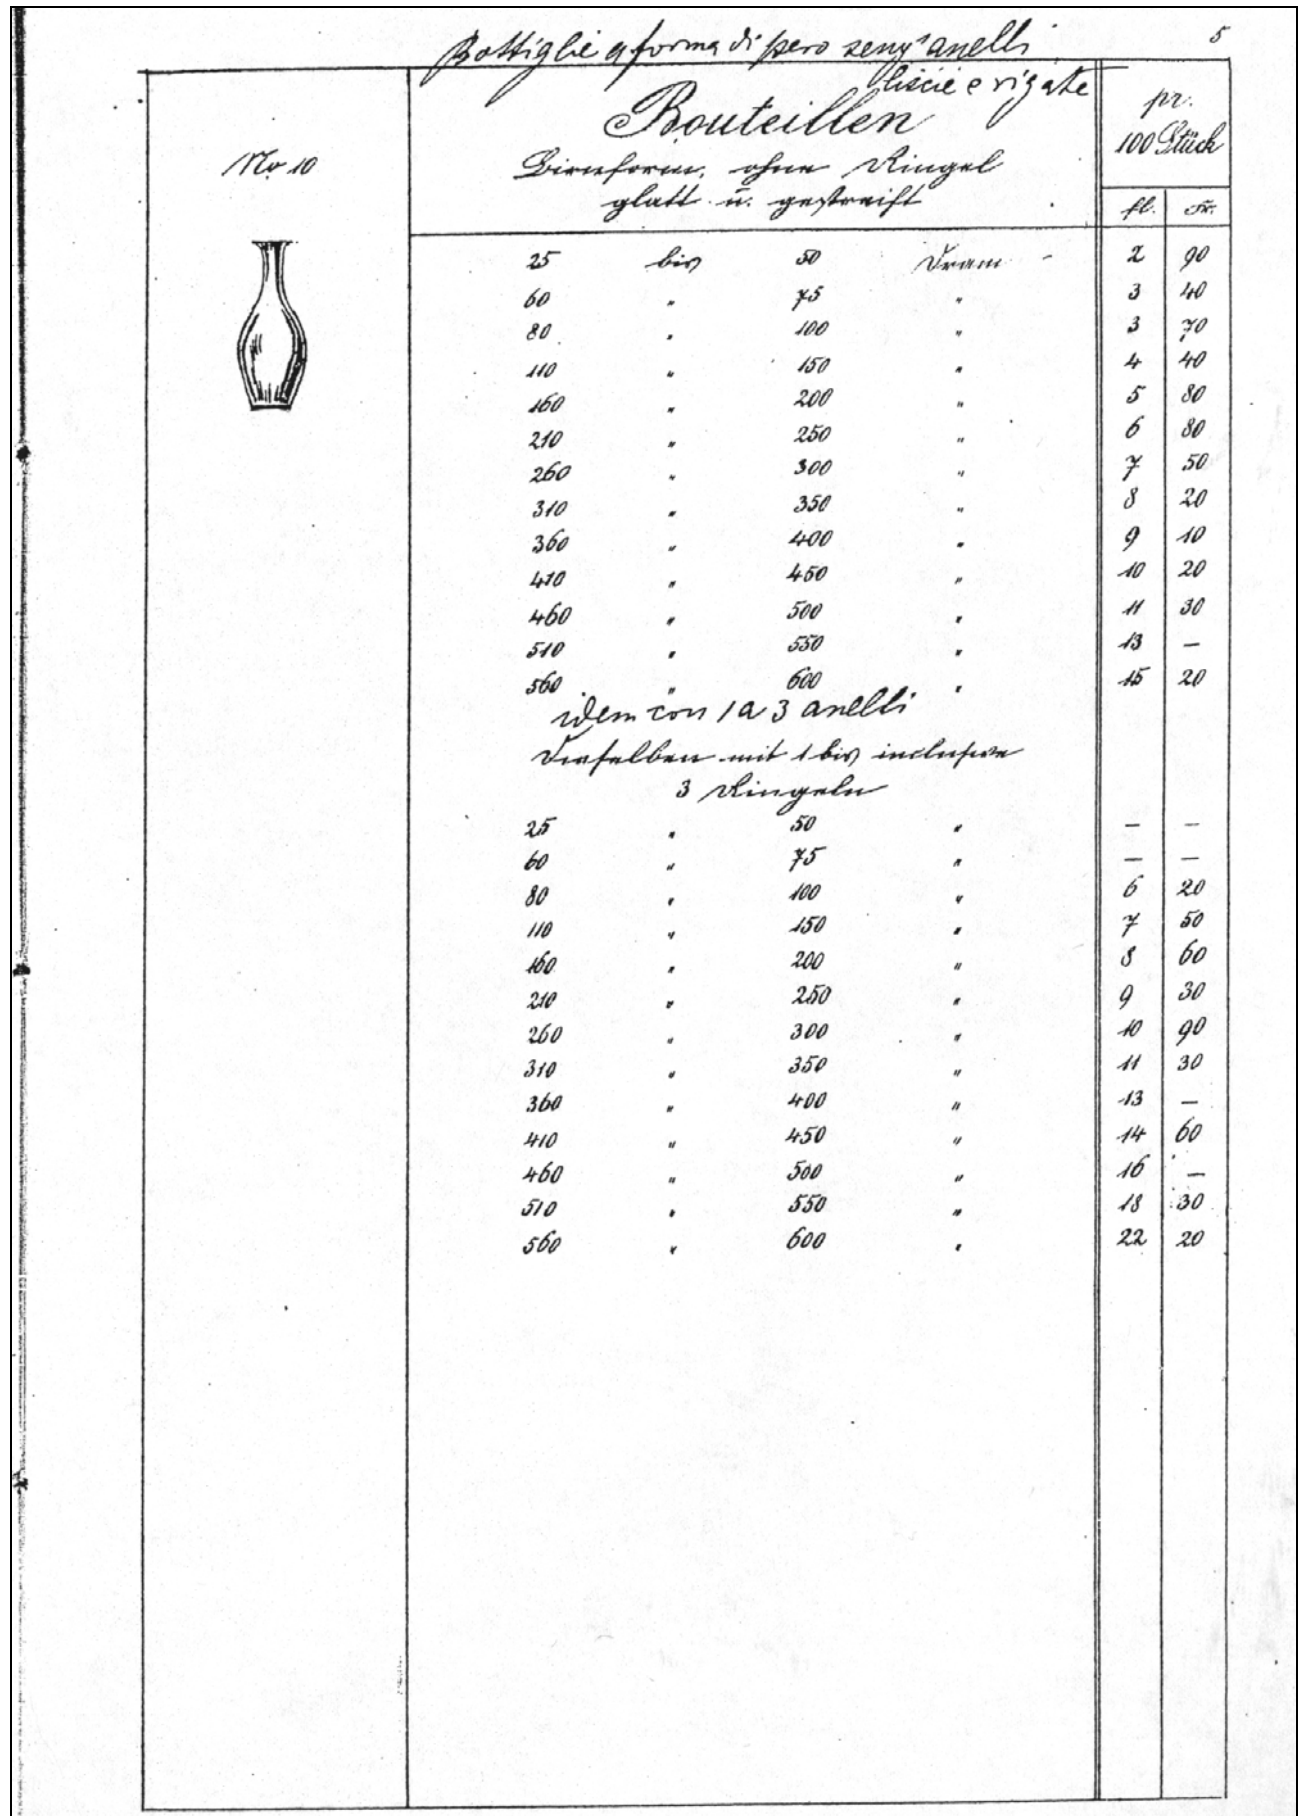 5
Bottiglie a forma di pero senz'anelli
liscie e rigate
Bouteillen
pr.
100 Stück
No 10
Birnform, ohne Ringel
glatt u. gestreift
fl. Kr.
25 bis 50 Dram 2 90
60 " 75 " 3 40
80 " 100 " 3 70
110 " 150 " 4 40
160 " 200 " 5 80
210 " 250 " 6 80
260 " 300 " 7 50
310 " 350 " 8 20
360 " 400 " 9 10
410 " 450 " 10 20
460 " 500 " 11 30
510 " 550 " 13 —
560 " 600 " 15 20
idem con 1 a 3 anelli
Dieselben mit 1 bis inclusive
3 Ringeln
25 " 50 " — —
60 " 75 " — —
80 " 100 " 6 20
110 " 150 " 7 50
160 " 200 " 8 60
210 " 250 " 9 30
260 " 300 " 10 90
310 " 350 " 11 30
360 " 400 " 13 —
410 " 450 " 14 60
460 " 500 " 16 —
510 " 550 " 18 30
560 " 600 " 22 20